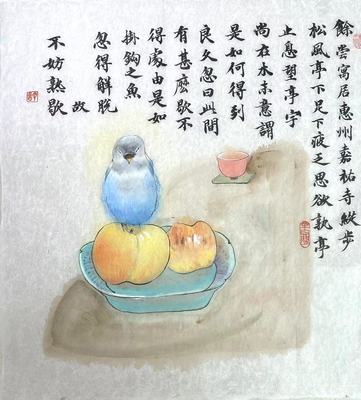 餘嘗寓居惠州嘉祐寺縱步
松風亭下足下疲乏思欲就亭
止息望亭宇
尚在木末意謂
是如何得到
良久忽曰此間
有甚麼歇不
得處由是如
掛鈎之魚
忽得解脫
故
不妨熟歇